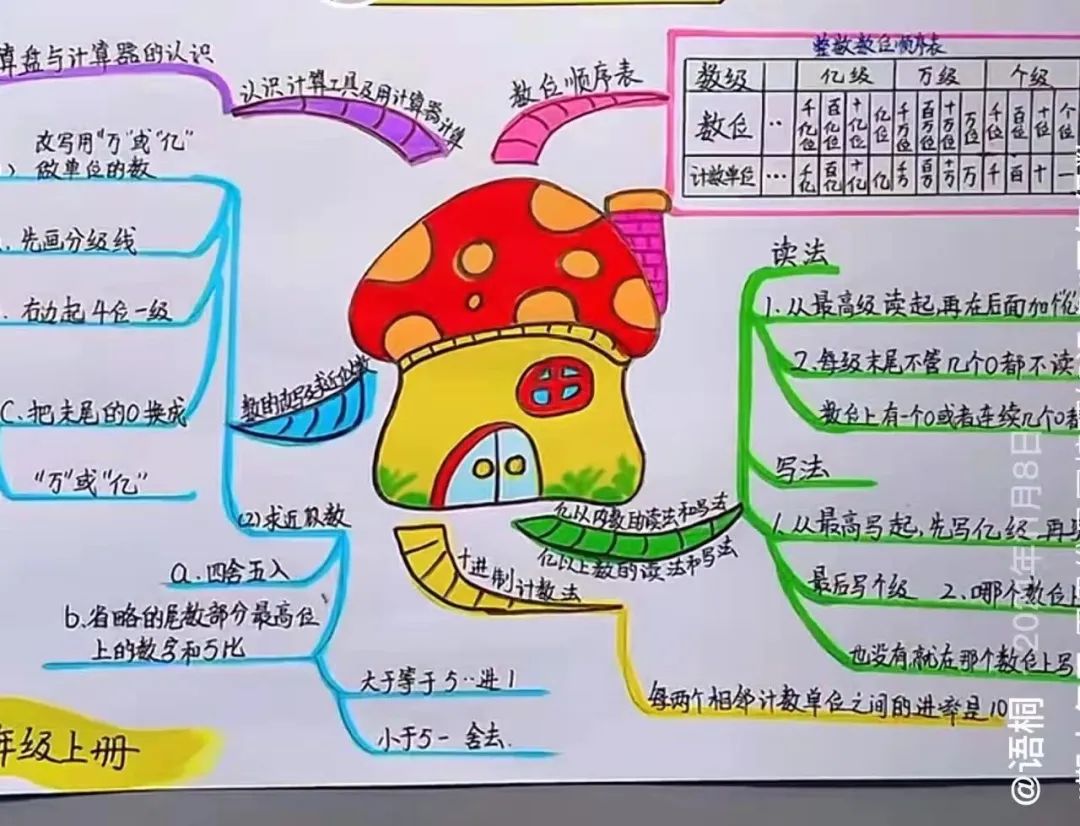 算盘与计算器的认识
认识计算工具及用计算器计算
数位顺序表
整数数位顺序表
数级 亿级 万级 个级
数位 ·· 千亿位 百亿位 十亿位 亿位 千万位 百万位 十万位 万位 千位 百位 十位 个位
计数单位 … 千亿 百亿 十亿 亿 千万 百万 十万 万 千 百 十 一
改写用“万”或“亿”
做单位的数
先画分级线
右边起4位一级
C.把末尾的0换成
“万”或“亿”
数的改写及求近似数
(2)求近似数
a.四舍五入
b.省略的尾数部分最高位
上的数字和5比
大于等于5··进1
小于5一舍去.
年级上册
读法
1.从最高级读起,再在后面加“亿”
2.每级末尾不管几个0都不读
数位上有一个0或者连续几个0都
写法
1.从最高写起,先写亿级,再
最后写个级 2.哪个数位上
也没有,就在那个数位上写
亿以内数的读法和写法
亿以上数的读法和写法
十进制计数法
每两个相邻计数单位之间的进率是10
@语桐
月8日